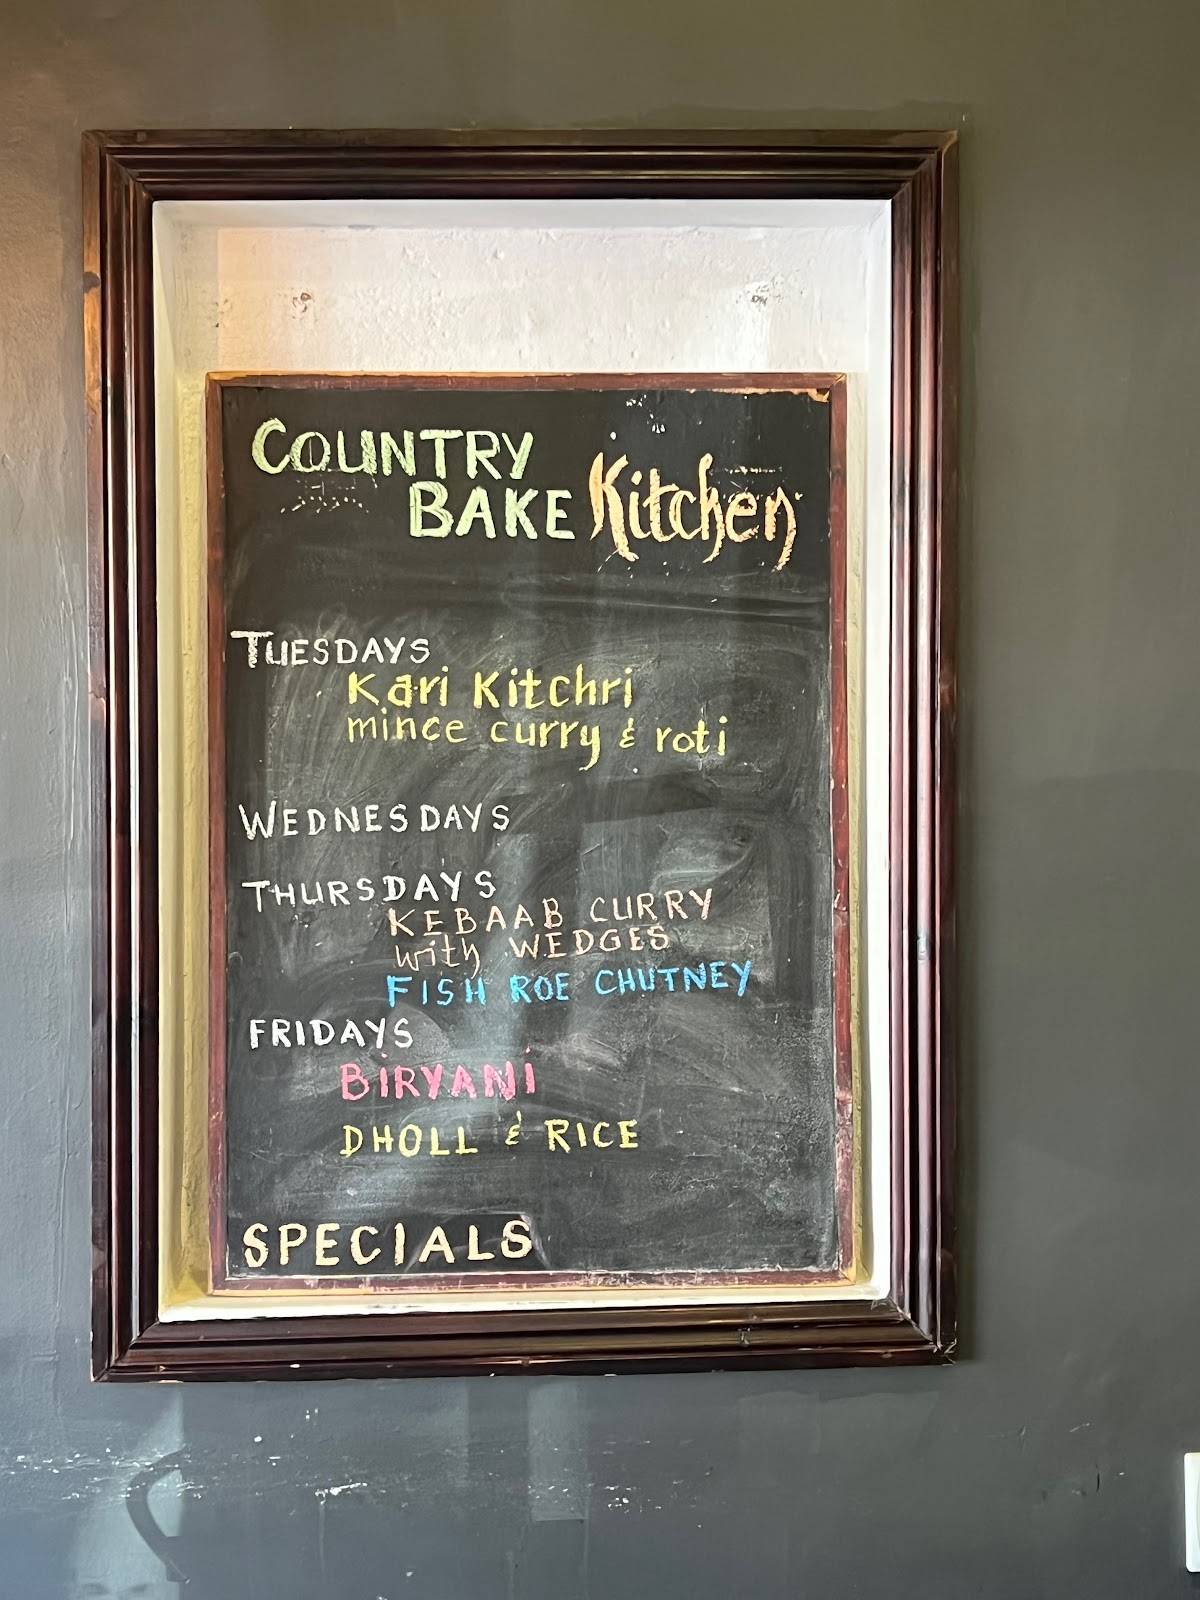 COUNTRY
BAKE Kitchen
TUESDAYS
Kari Kitchri
mince curry & roti
WEDNESDAYS
THURSDAYS
KEBAAB CURRY
with WEDGES
FISH ROE CHUTNEY
FRIDAYS
BIRYANI
DHOLL & RICE
SPECIALS